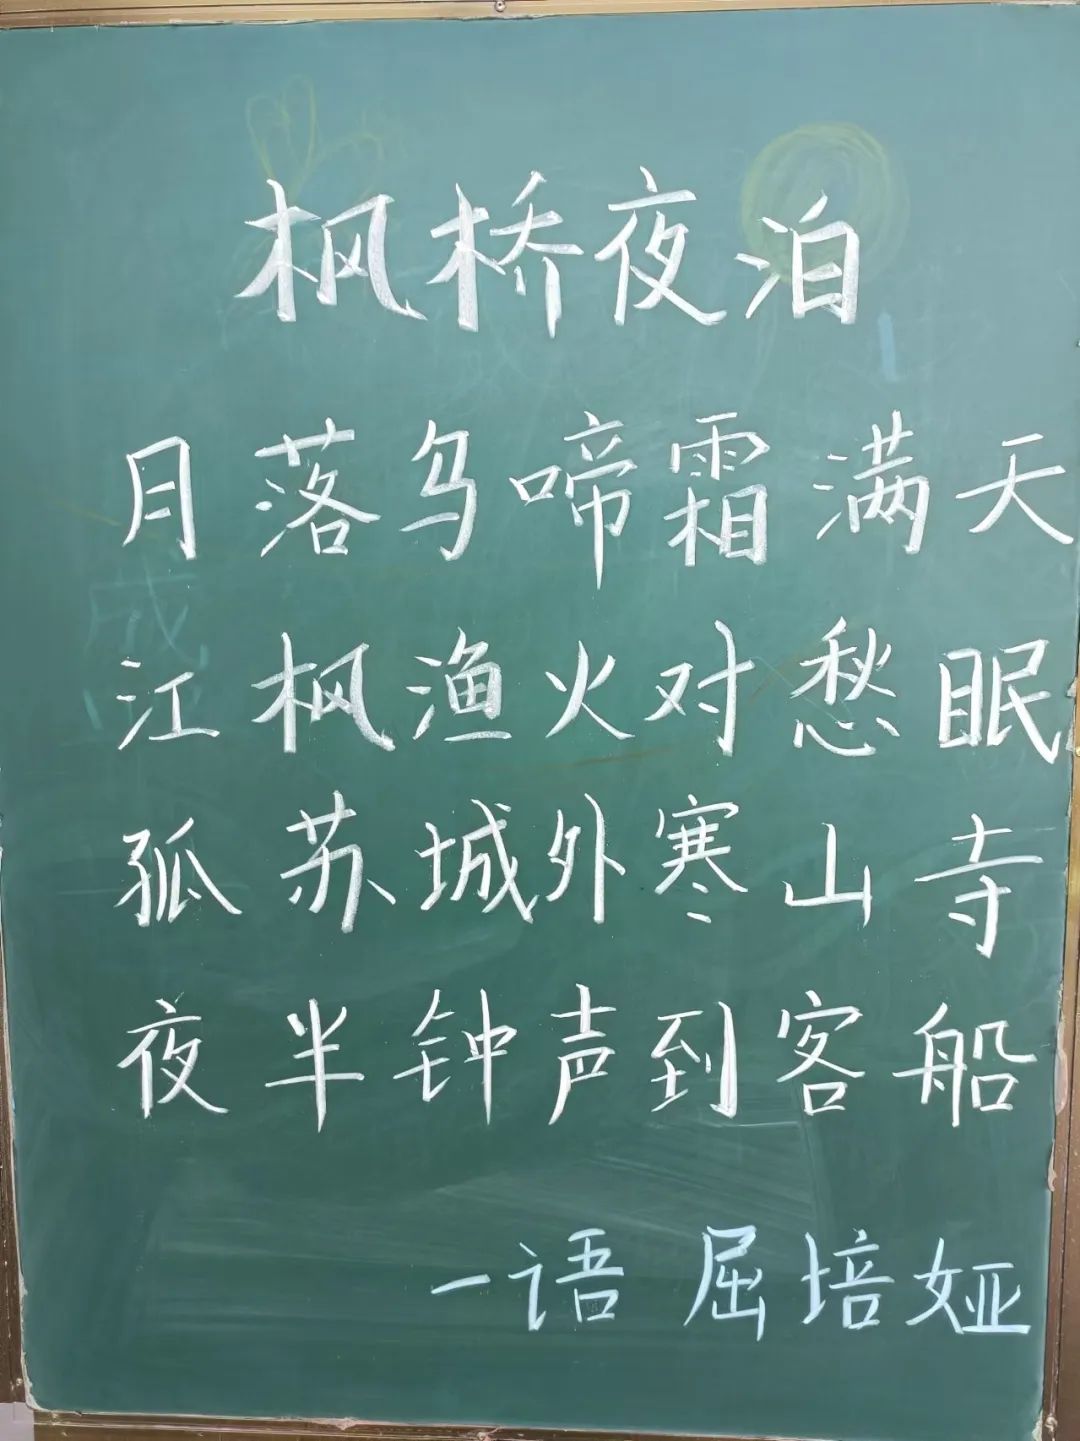 枫桥夜泊
月落乌啼霜满天
江枫渔火对愁眠
孤苏城外寒山寺
夜半钟声到客船
一语 屈培娅